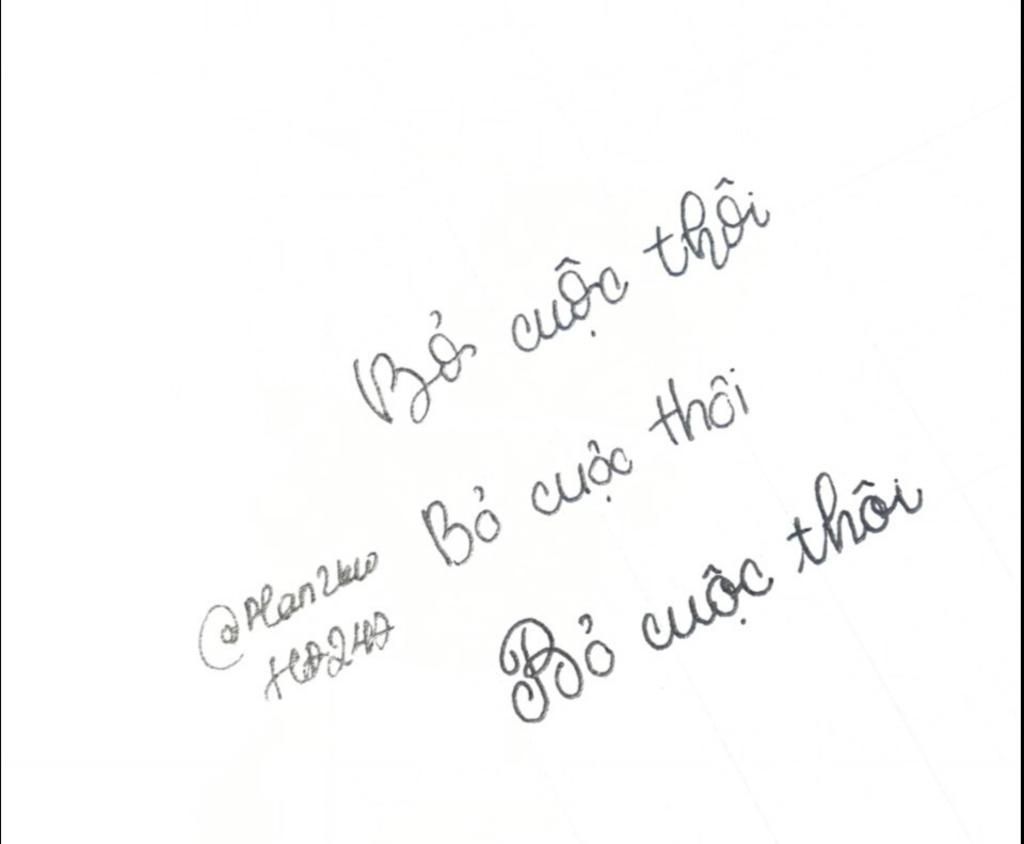 Bỏ cuộc thôi
Bỏ cuộc thôi
Bỏ cuộc thôi